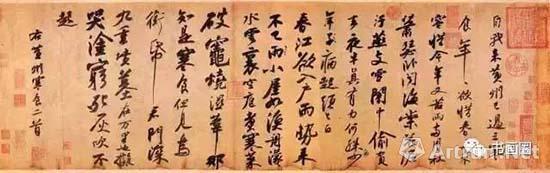 自我來黃州已過三寒
食年〻欲惜春〻去不
容惜今年又苦雨兩月秋
蕭瑟卧聞海棠花泥
汙燕支雪闇中偷負
去夜半真有力何殊少
年子病起頭已白
春江欲入戶雨勢來
不已雨小屋如漁舟濛〻
水雲裏空庖煮寒菜
破竈燒濕葦那
知是寒食但見烏
銜帋君門深
九重墳墓在萬里也擬
哭塗窮死灰吹不
起
右黃州寒食二首
书画圈